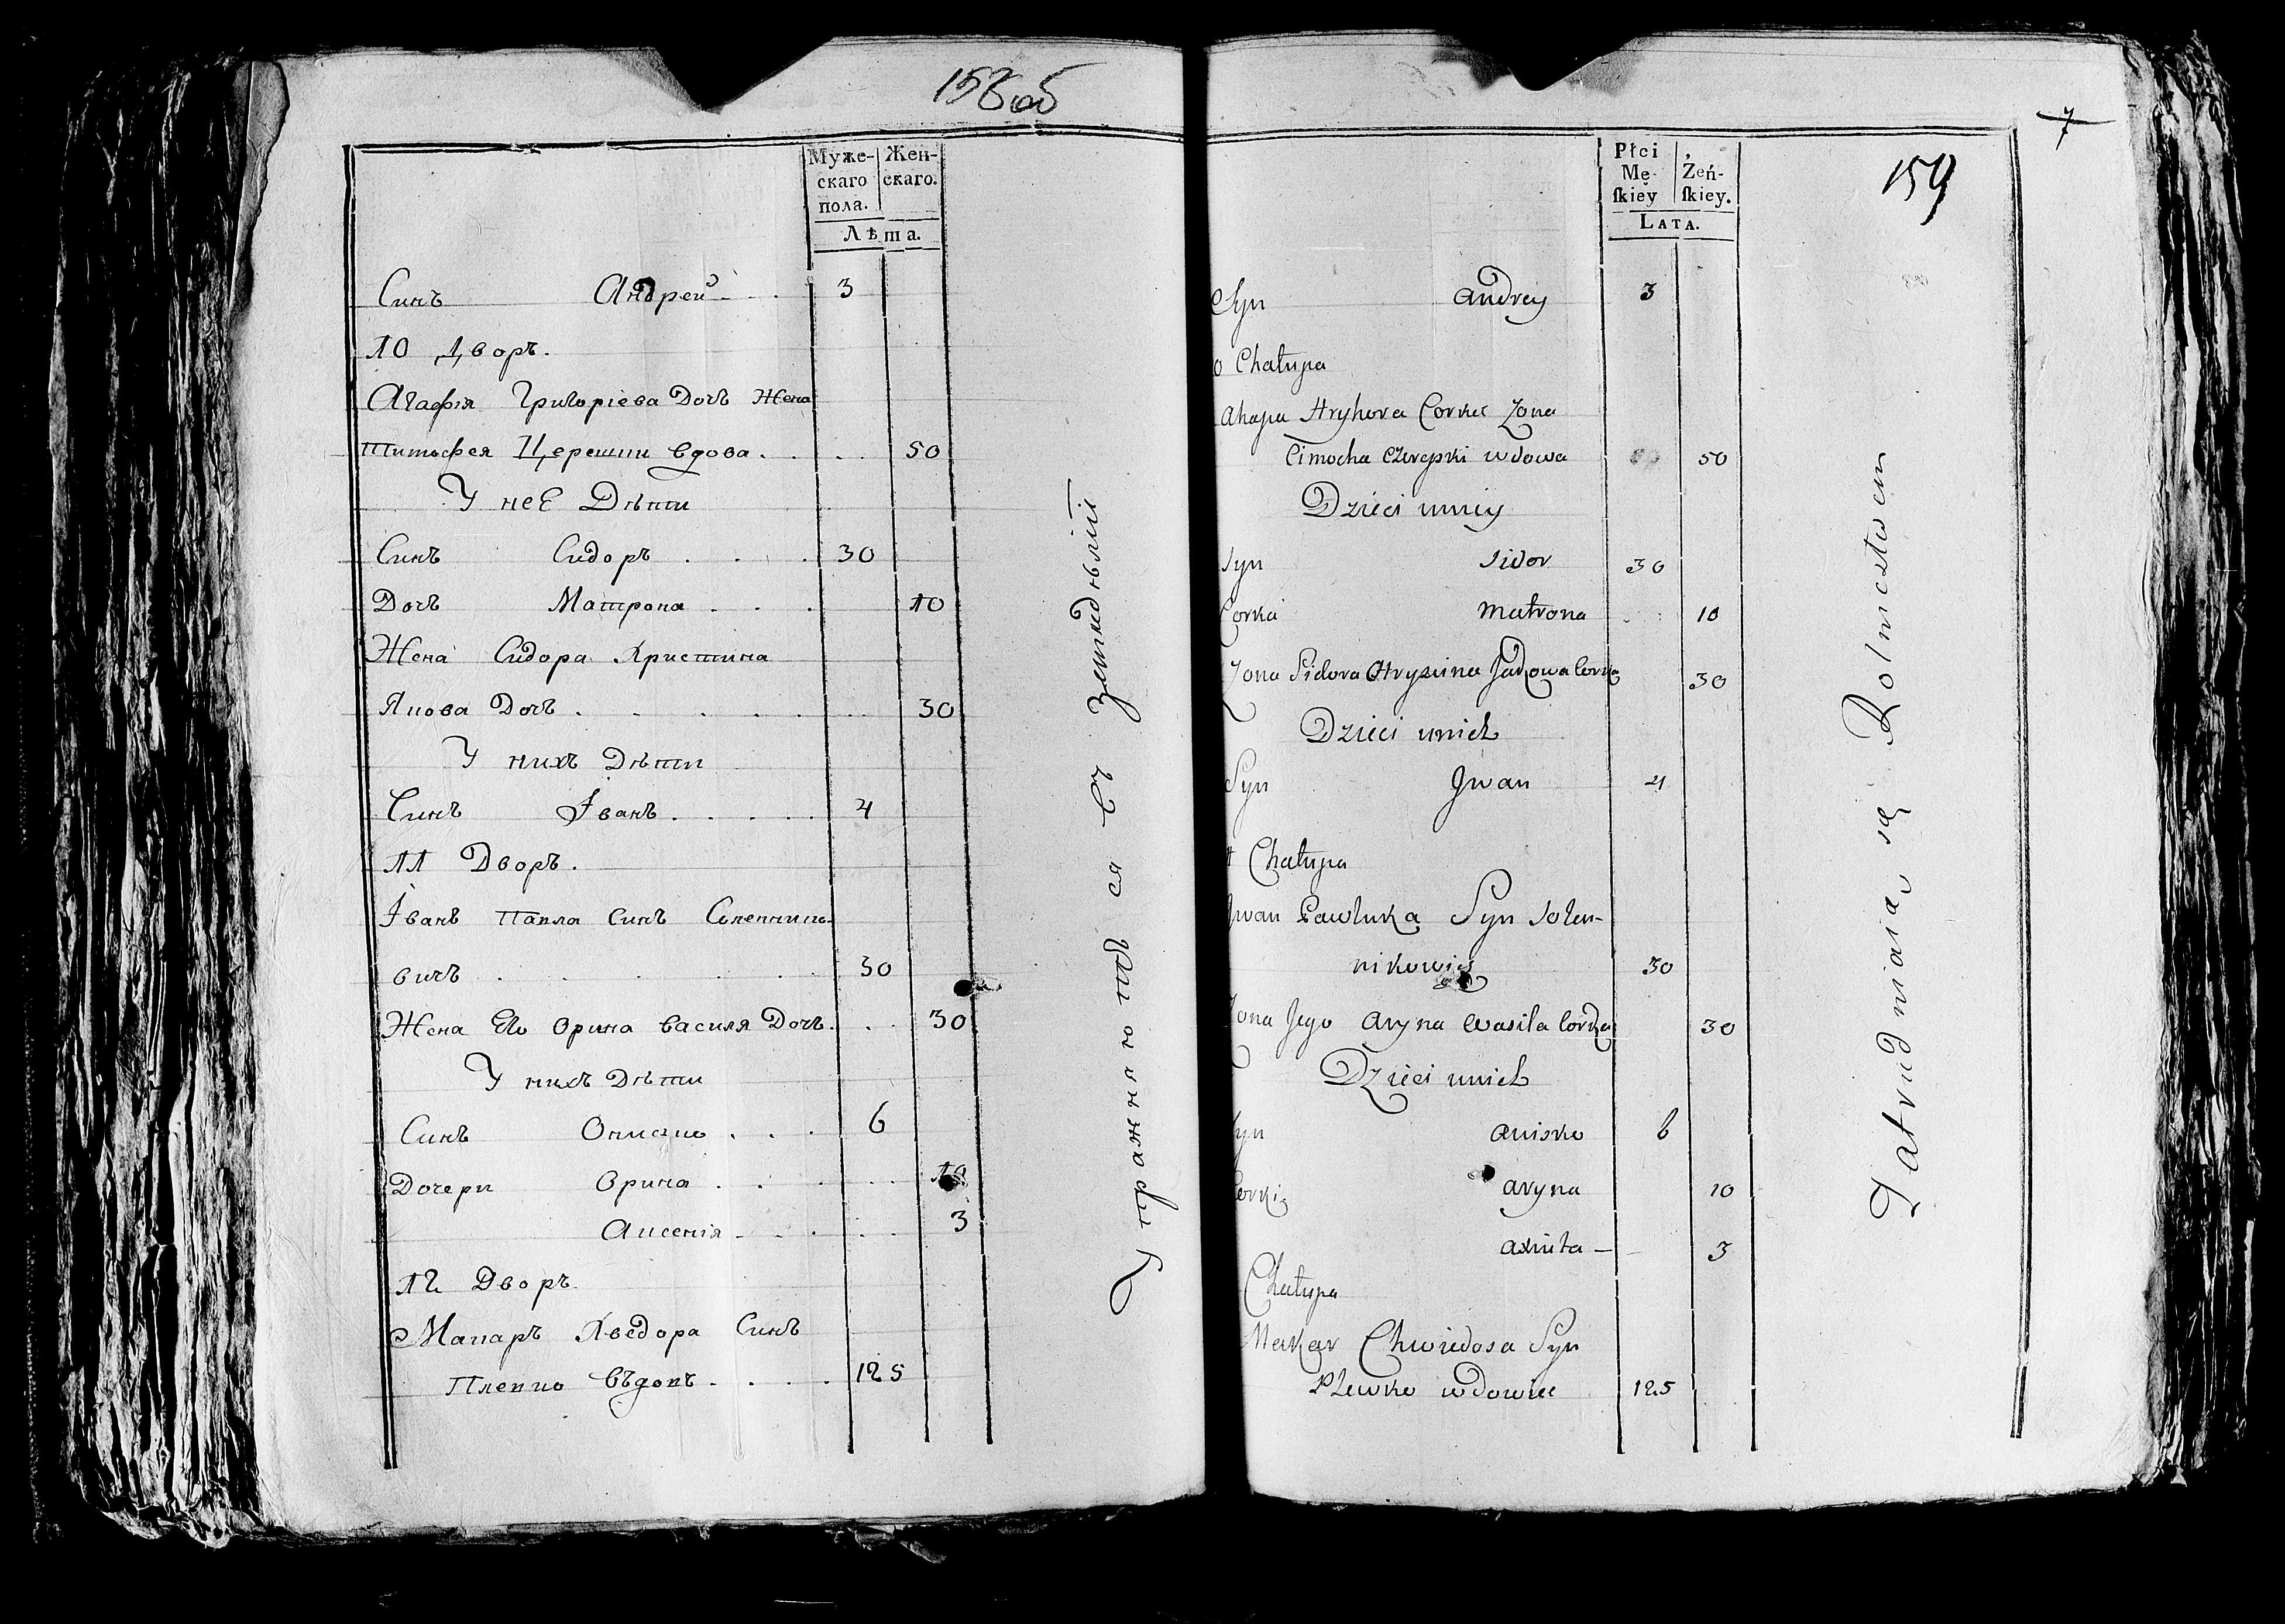 158 об
Муже-
скаго
пола.
Жен-
скаго.
Лѣта.
Синъ Андрей 3
10 Дворъ.
Агафія Григоріева Дочъ Жена
Тимофея Церешки вдова 50
У неѣ Дѣти
Синъ Сидоръ 30
Дочъ Матрона 10
Жена Сидора Христина
Яцова Дочъ 30
У нихъ Дѣти
Синъ Іванъ 4
11 Дворъ.
Іванъ Павла Синъ
вичъ 30
Жена Его Орина Василя Дочъ 30
У нихъ Дѣти
Синъ Онисько 6
Дочери Орина 10
Аксенія 3
12 Дворъ
Макаръ Хведора Синъ
Плевко Въдовъ 125
Упражняются въ Земледѣліи
7
159
Płci
Mę-
ſkiey
Żeń-
ſkiey.
LATA.
Syn Andrey 3
0 Chałupa
Ahapa Hryhora Corka Zona
Cimocha wdowa 50
Dzieci uniey
Syn Sidor 30
Corka Matrona 10
Zona Sidora Hryscina Jackowa Corka 30
Dzieci unich
Syn Jwan 4
1 Chałupa
Jwan Pawluka Syn Solen-
nikowicz 30
Zona Jego Aryna Wasila Corka 30
Dzieci unich
Syn Anisko 6
Corki Aryna 10
Axiuta 3
Chałupa
Makar Chwiedora Syn
Plewko wdowiec 125
Zatrudniaią się Rolnictwem